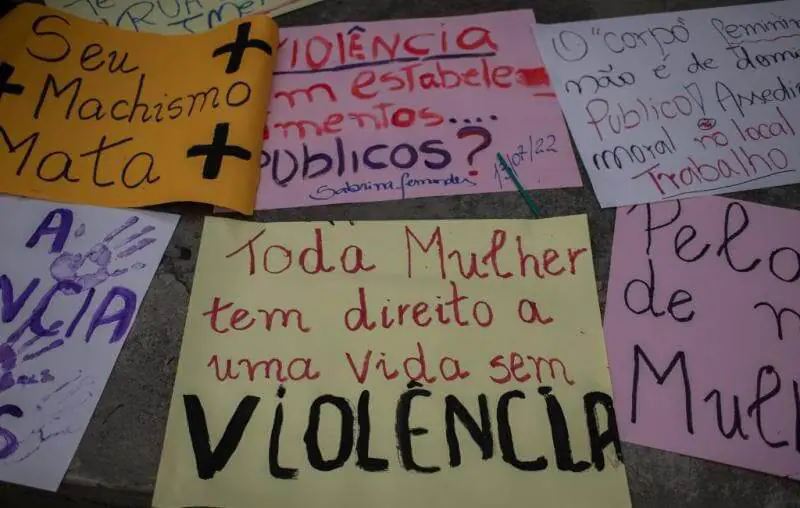 RUA
Seu
Machismo
Mata
VIOLÊNCIA
em estabele
imentos....
PÚBLICOS?
Sabrina fernandes
13/07/22
O "corpo" feminino
não é de domí
Público! Assédi
moral no local
Trabalho
A
VCIA
S
Toda Mulher
tem direito a
uma vida sem
VIOLÊNCIA
Pelo
de
Mul